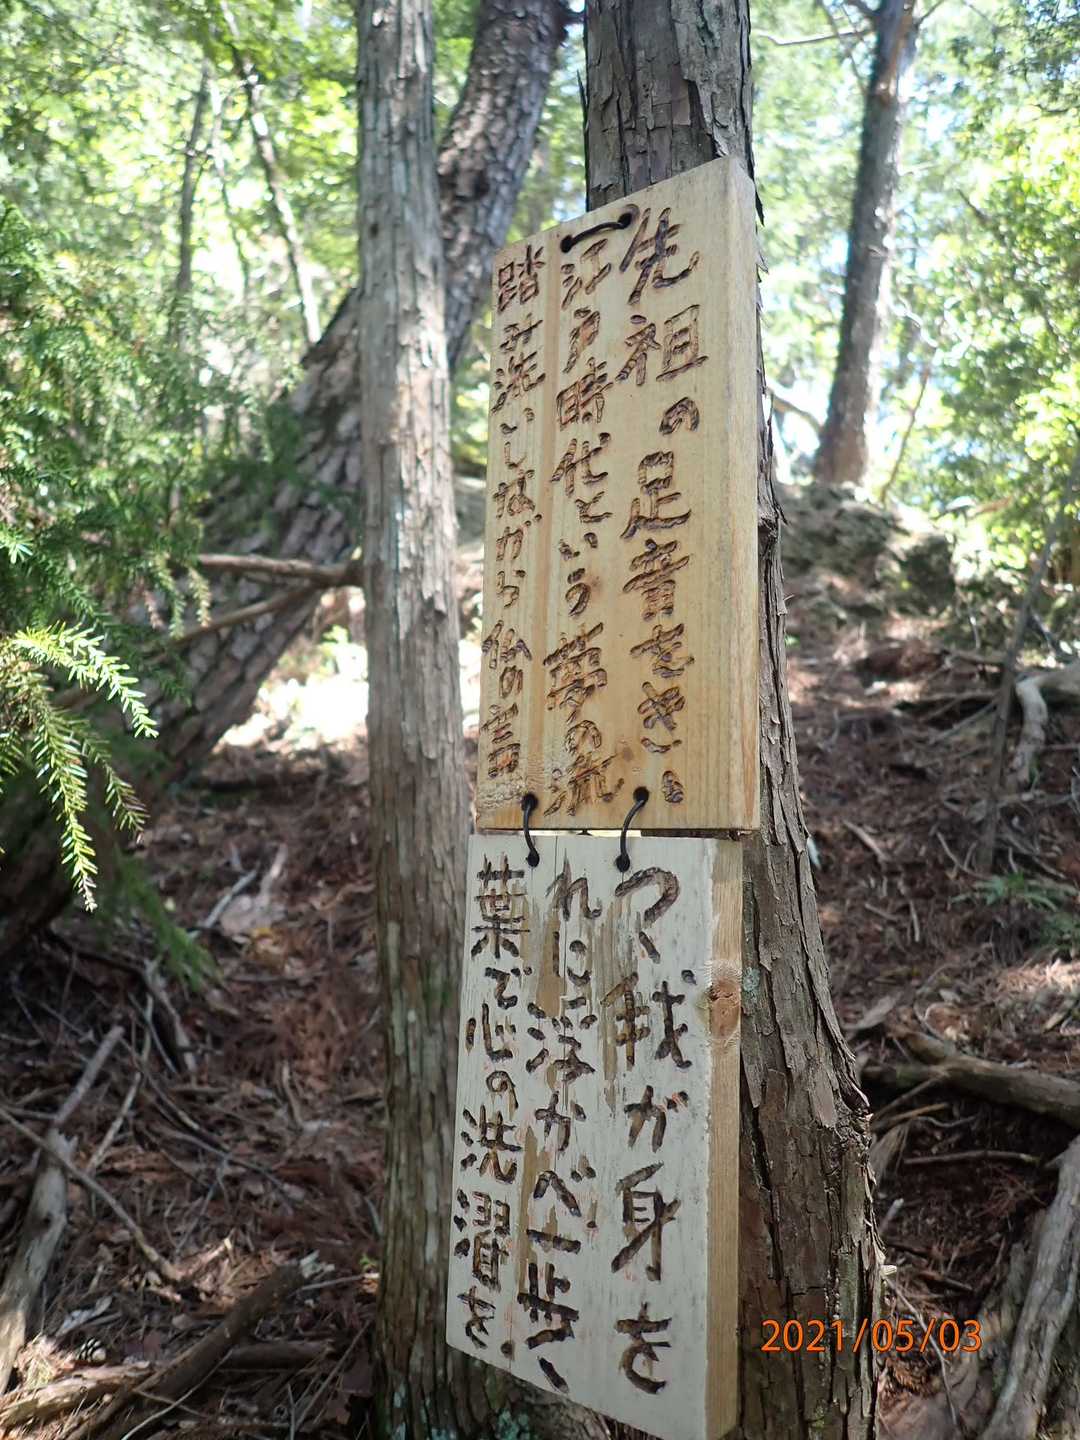 先祖の足音をきいつゝ我が身を
江戸時代という夢の流れに浮かべ一歩〱
踏み洗いしながら の言葉で心の洗濯を
2021/05/03